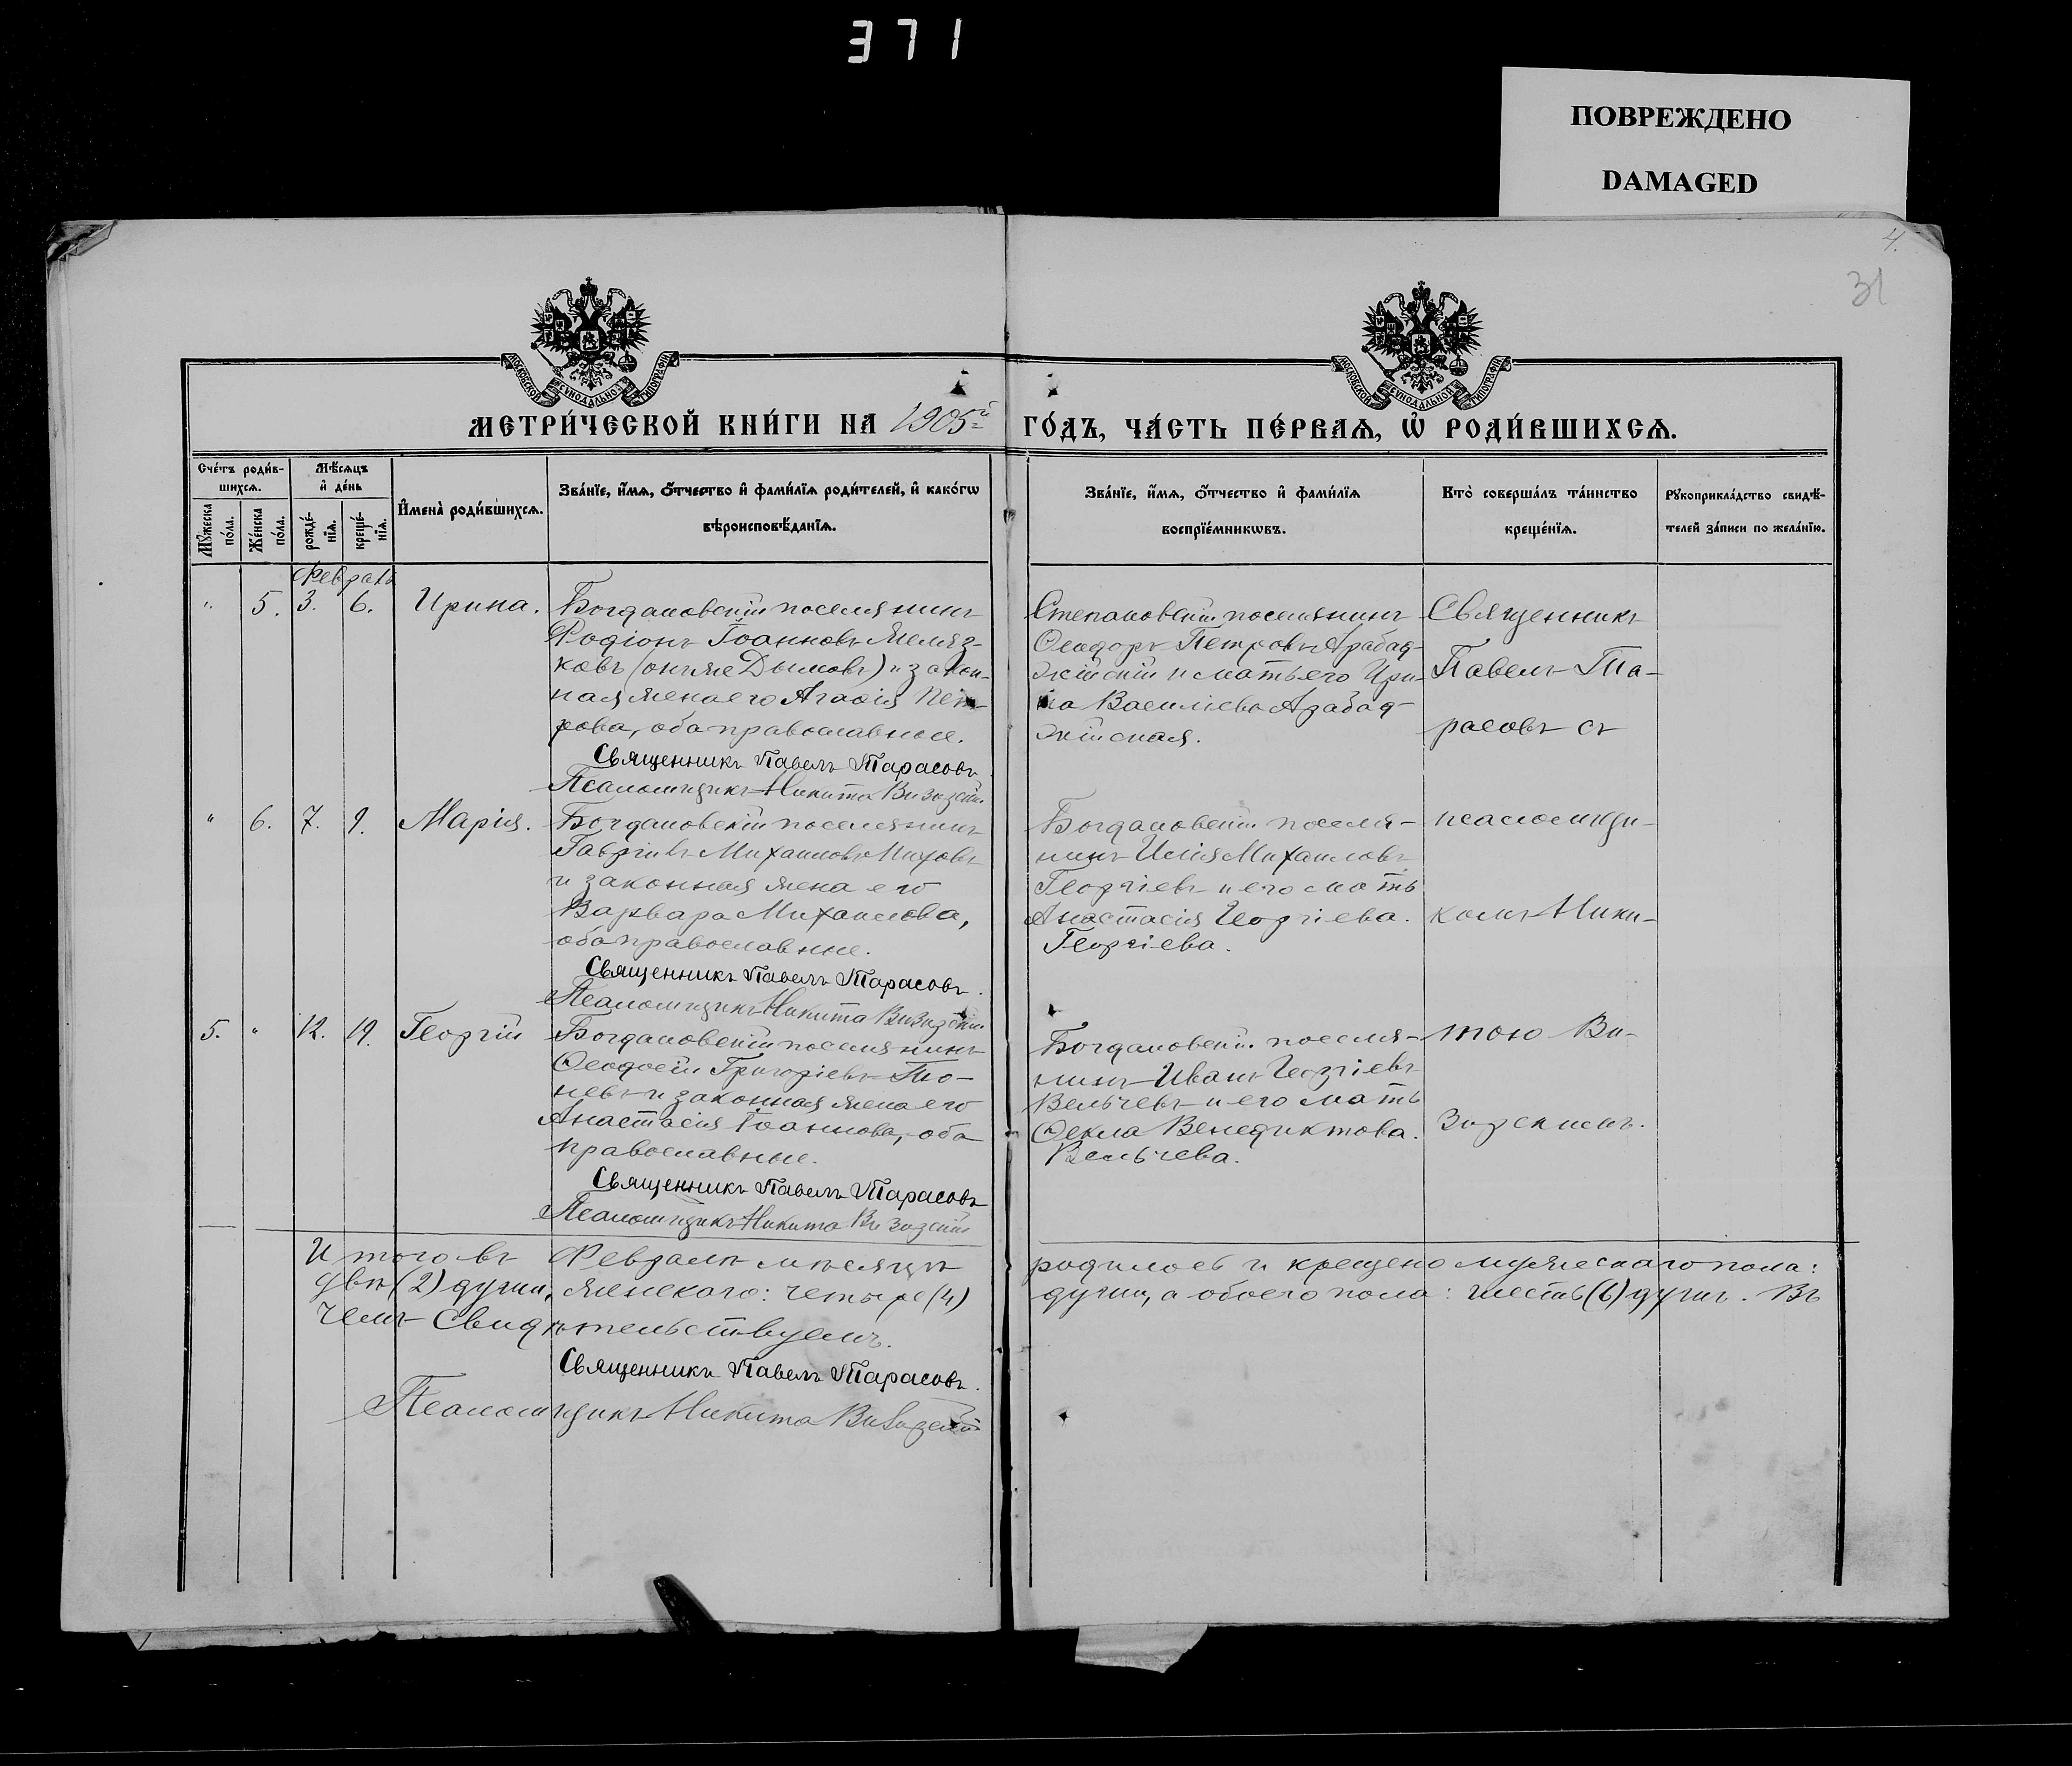 371
ПОВРЕЖДЕНО
DAMAGED
4.
31
МОСКОВСКОЙ СѴНОДАЛЬНОЙ ТИПОГРАФІИ
МОСКОВСКОЙ СѴНОДАЛЬНОЙ ТИПОГРАФІИ
МЕТРИ́ЧЕСКОЙ КНИ́ГИ НА 1905й ГО́ДЪ, ЧА́СТЬ ПЕ́РВАѦ, Ѡ҆ РОДИ́ВШИХСѦ.
Сче́тъ роди́в-
шихсѧ.
Мѣ́сѧцъ
и҆ де́нь
И҆мена̀ роди́вшихсѧ.
Зва́нїе, и҆́мѧ, ѻ҆́тчество и҆ фами́лїѧ роди́телей, и҆ како́гѡ
вѣроисповѣ́данїѧ.
Мꙋ́жеска по́ла.
Же́нска по́ла.
рожде́-нїѧ.
креще́-нїѧ.
Зва́нїе, и҆́мѧ, ѻ҆́тчество и҆ фами́лїѧ
воспрїе́мникѡвъ.
Кто̀ соверша́лъ та́инство
креще́нїѧ.
Рꙋкоприкла́дство свидѣ́-
телей за́писи по жела́нїю.
Февраль
" 5. 3. 6. Ирина.
Богдановскій поселянинъ
Родіонъ Іоанновъ Желяз-
ковъ (онъ же Дымовъ) и закон-
ная жена его Агафія Пет-
рова, оба православные.
Священникъ Павелъ Тарасовъ
Псаломщикъ Никита Визирскій
Степановскій поселянинъ
Ѳеодоръ Петровъ Арабад-
жійскій и мать его Ири-
на Васильева Арабад-
жійская.
Священникъ
Павелъ Та-
расовъ съ
" 6. 7. 9. Марія.
Богдановскій поселянинъ
Гавріилъ Михаиловъ
и законная жена его
Варвара Михаилова,
оба православные.
Священникъ Павелъ Тарасовъ.
Псаломщикъ Никита Визирскій
Богдановскій поселя-
нинъ Илія Михаиловъ
Георгіевъ и его мать
Анастасія Георгіева.
Георгіева.
псаломщи-
комъ Ники-
5. " 12. 19. Георгій
Богдановскій поселянинъ
Ѳеодосій Григоріевъ То-
невъ и законная жена его
Анастасія Іоаннова, оба
православные.
Священникъ Павелъ Тарасовъ
Псаломщикъ Никита Визирскій
Богдановскій поселя-
нинъ Иванъ Георгіевъ
Вельчевъ и его мать
Ѳекла Венедиктова.
Вельчева.
тою Ви-
зирскимъ.
Итого въ Февралѣ мѣсяцѣ родилось и крещено мужескаго пола:
двѣ (2) души, женскаго: четыре (4) души, а обоего пола: шесть (6) душъ. Въ
чемъ свидѣтельствуемъ.
Священникъ Павелъ Тарасовъ.
Псаломщикъ Никита Визирскій